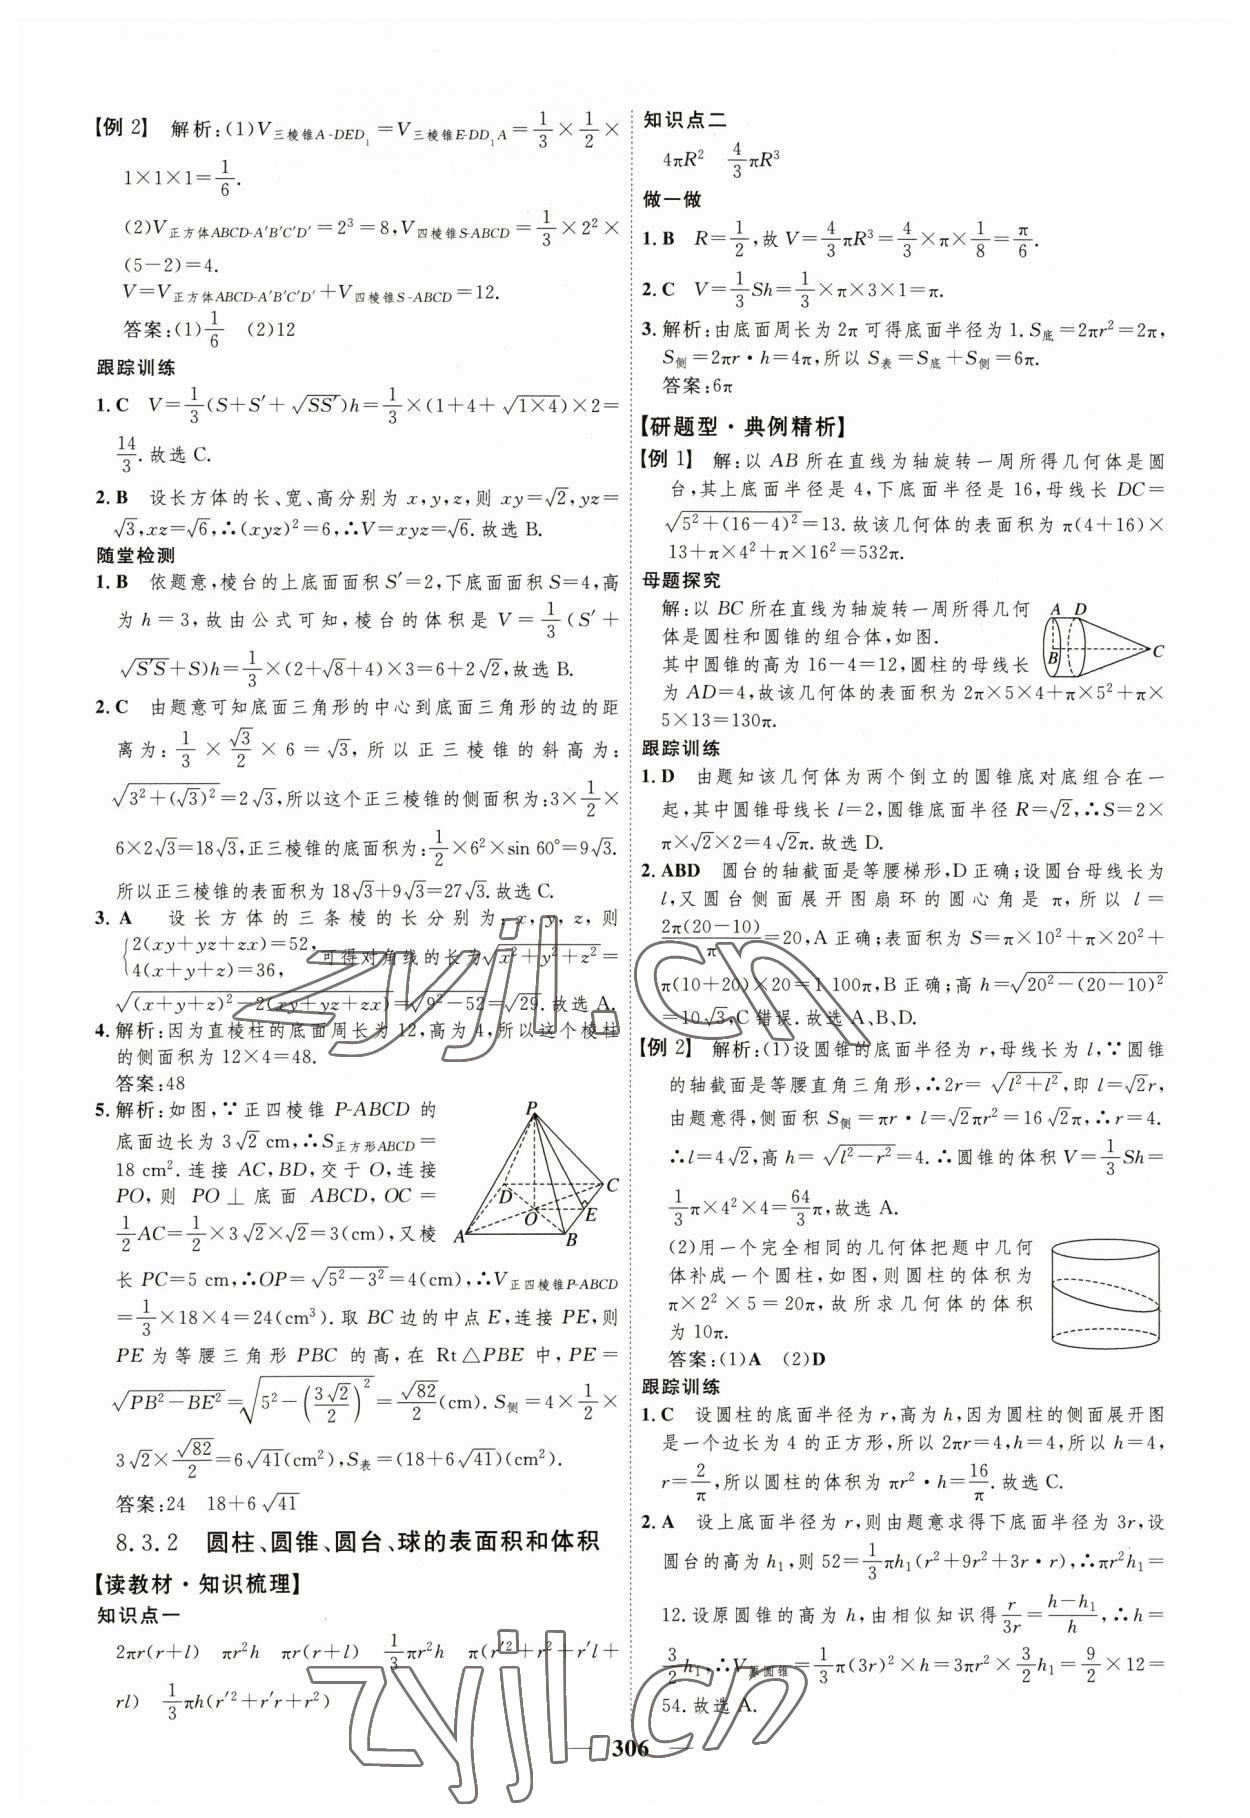 【例 2】 解析:(1)V三棱锥A-DED₁=V三棱锥E-DD₁A=1/3×1/2×
1×1×1=1/6.
(2)V正方体ABCD-A′B′C′D′=2³=8,V四棱锥S-ABCD=1/3×2²×
(5-2)=4.
V=V正方体ABCD-A′B′C′D′+V四棱锥S-ABCD=12.
答案:(1)1/6 (2)12
跟踪训练
1.C V=1/3(S+S′+√(SS′))h=1/3×(1+4+√(1×4))×2=
14/3.故选 C.
2.B 设长方体的长、宽、高分别为 x,y,z,则 xy=√2,yz=
√3,xz=√6,∴(xyz)²=6,∴V=xyz=√6.故选 B.
随堂检测
1.B 依题意,棱台的上底面面积 S′=2,下底面面积 S=4,高
为 h=3,故由公式可知,棱台的体积是 V=1/3(S′+
√(S′S)+S)h=1/3×(2+√8+4)×3=6+2√2,故选 B.
2.C 由题意可知底面三角形的中心到底面三角形的边的距
离为:1/3×√3/2×6=√3,所以正三棱锥的斜高为:
√(3²+(√3)²)=2√3,所以这个正三棱锥的侧面积为:3×1/2×
6×2√3=18√3,正三棱锥的底面积为:1/2×6²×sin 60°=9√3.
所以正三棱锥的表面积为 18√3+9√3=27√3.故选 C.
3.A 设长方体的三条棱的长分别为,x,y,z,则
{2(xy+yz+zx)=52,
4(x+y+z)=36, 可得对角线的长为√(x²+y²+z²)=
√((x+y+z)²-2(xy+yz+zx))=√(9²-52)=√29.故选 A.
4.解析:因为直棱柱的底面周长为 12,高为 4,所以这个棱柱
的侧面积为 12×4=48.
答案:48
5.解析:如图,∵正四棱锥 P-ABCD 的
底面边长为 3√2 cm,∴S正方形ABCD=
18 cm².连接 AC,BD,交于 O,连接
PO,则 PO⊥底面 ABCD,OC=
1/2AC=1/2×3√2×√2=3(cm),又棱
长 PC=5 cm,∴OP=√(5²-3²)=4(cm),∴V正四棱锥P-ABCD
=1/3×18×4=24(cm³).取 BC 边的中点 E,连接 PE,则
PE 为等腰三角形 PBC 的高,在 Rt△PBE 中,PE=
√(PB²-BE²)=√(5²-(3√2/2)²)=√82/2(cm).S侧=4×1/2×
3√2×√82/2=6√41(cm²),S表=(18+6√41)(cm²).
答案:24 18+6√41
P
D
C
O
E
A
B
8.3.2 圆柱、圆锥、圆台、球的表面积和体积
【读教材·知识梳理】
知识点一
2πr(r+l) πr²h πr(r+l) 1/3πr²h π(r′²+r²+r′l+
rl) 1/3πh(r′²+r′r+r²)
知识点二
4πR² 4/3πR³
做一做
1.B R=1/2,故 V=4/3πR³=4/3×π×1/8=π/6.
2.C V=1/3Sh=1/3×π×3×1=π.
3.解析:由底面周长为 2π 可得底面半径为 1.S底=2πr²=2π,
S侧=2πr·h=4π,所以 S表=S底+S侧=6π.
答案:6π
【研题型·典例精析】
【例 1】 解:以 AB 所在直线为轴旋转一周所得几何体是圆
台,其上底面半径是 4,下底面半径是 16,母线长 DC=
√(5²+(16-4)²)=13.故该几何体的表面积为 π(4+16)×
13+π×4²+π×16²=532π.
母题探究
解:以 BC 所在直线为轴旋转一周所得几何
体是圆柱和圆锥的组合体,如图.
其中圆锥的高为 16-4=12,圆柱的母线长
为 AD=4,故该几何体的表面积为 2π×5×4+π×5²+π×
5×13=130π.
A D
B
C
跟踪训练
1.D 由题知该几何体为两个倒立的圆锥底对底组合在一
起,其中圆锥母线长 l=2,圆锥底面半径 R=√2,∴S=2×
π×√2×2=4√2π.故选 D.
2.ABD 圆台的轴截面是等腰梯形,D 正确;设圆台母线长为
l,又圆台侧面展开图扇环的圆心角是 π,所以 l=
2π(20-10)/π=20,A 正确;表面积为 S=π×10²+π×20²+
π(10+20)×20=1 100π,B 正确;高 h=√(20²-(20-10)²)
=10√3,C 错误.故选 A、B、D.
【例 2】 解析:(1)设圆锥的底面半径为 r,母线长为 l,∵圆锥
的轴截面是等腰直角三角形,∴2r=√(l²+l²),即 l=√2r,
由题意得,侧面积 S侧=πr·l=√2πr²=16√2π,∴r=4.
∴l=4√2,高 h=√(l²-r²)=4.∴圆锥的体积 V=1/3Sh=
1/3π×4²×4=64/3π,故选 A.
(2)用一个完全相同的几何体把题中几何
体补成一个圆柱,如图,则圆柱的体积为
π×2²×5=20π,故所求几何体的体积
为 10π.
答案:(1)A (2)D
跟踪训练
1.C 设圆柱的底面半径为 r,高为 h,因为圆柱的侧面展开图
是一个边长为 4 的正方形,所以 2πr=4,h=4,所以 h=4,
r=2/π,所以圆柱的体积为 πr²·h=16/π.故选 C.
2.A 设上底面半径为 r,则由题意求得下底面半径为 3r,设
圆台的高为 h₁,则 52=1/3πh₁(r²+9r²+3r·r),∴πr²h₁=
12.设原圆锥的高为 h,由相似知识得r/3r=(h-h₁)/h,∴h=
3/2h₁,∴V原圆锥=1/3π(3r)²×h=3πr²×3/2h₁=9/2×12=
54.故选 A.
306
zyjl.cn
zyjl.cn